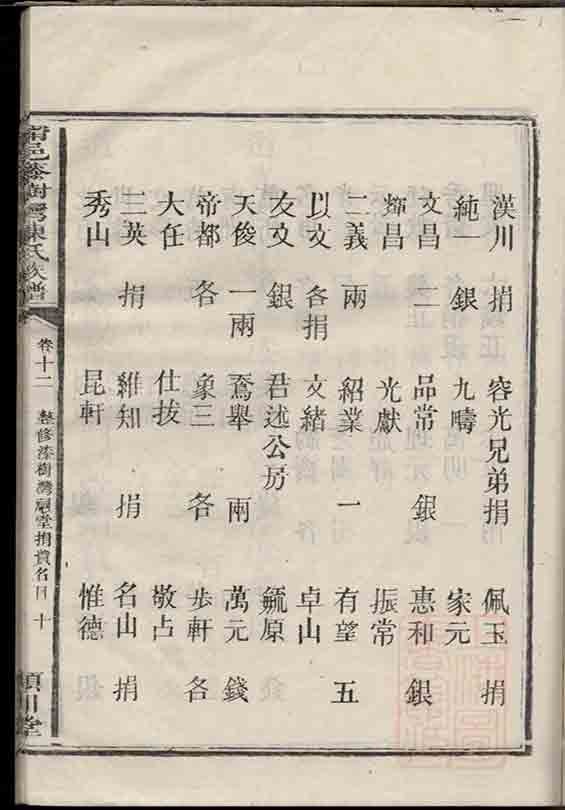 漢川 捐 容光兄弟捐 佩玉 捐
純一 銀 九疇 家元
文昌 二 品常 銀 惠和 銀
輝昌 光獻 振常
二義 兩 紹業 一 有望 五
以文 各捐 文緒 卓山
友文 銀 君述公房 毓原
天俊 一兩 鶱舉 兩 萬元 錢
帝都 各 象三 各 步軒 各
大任 仕拔 敬占
三英 捐 維知 捐 名山 捐
秀山 昆軒 惟德
甯邑漆樹灣陳氏族譜 卷十二 整修漆樹灣祠堂捐貲名目 十 潁川堂